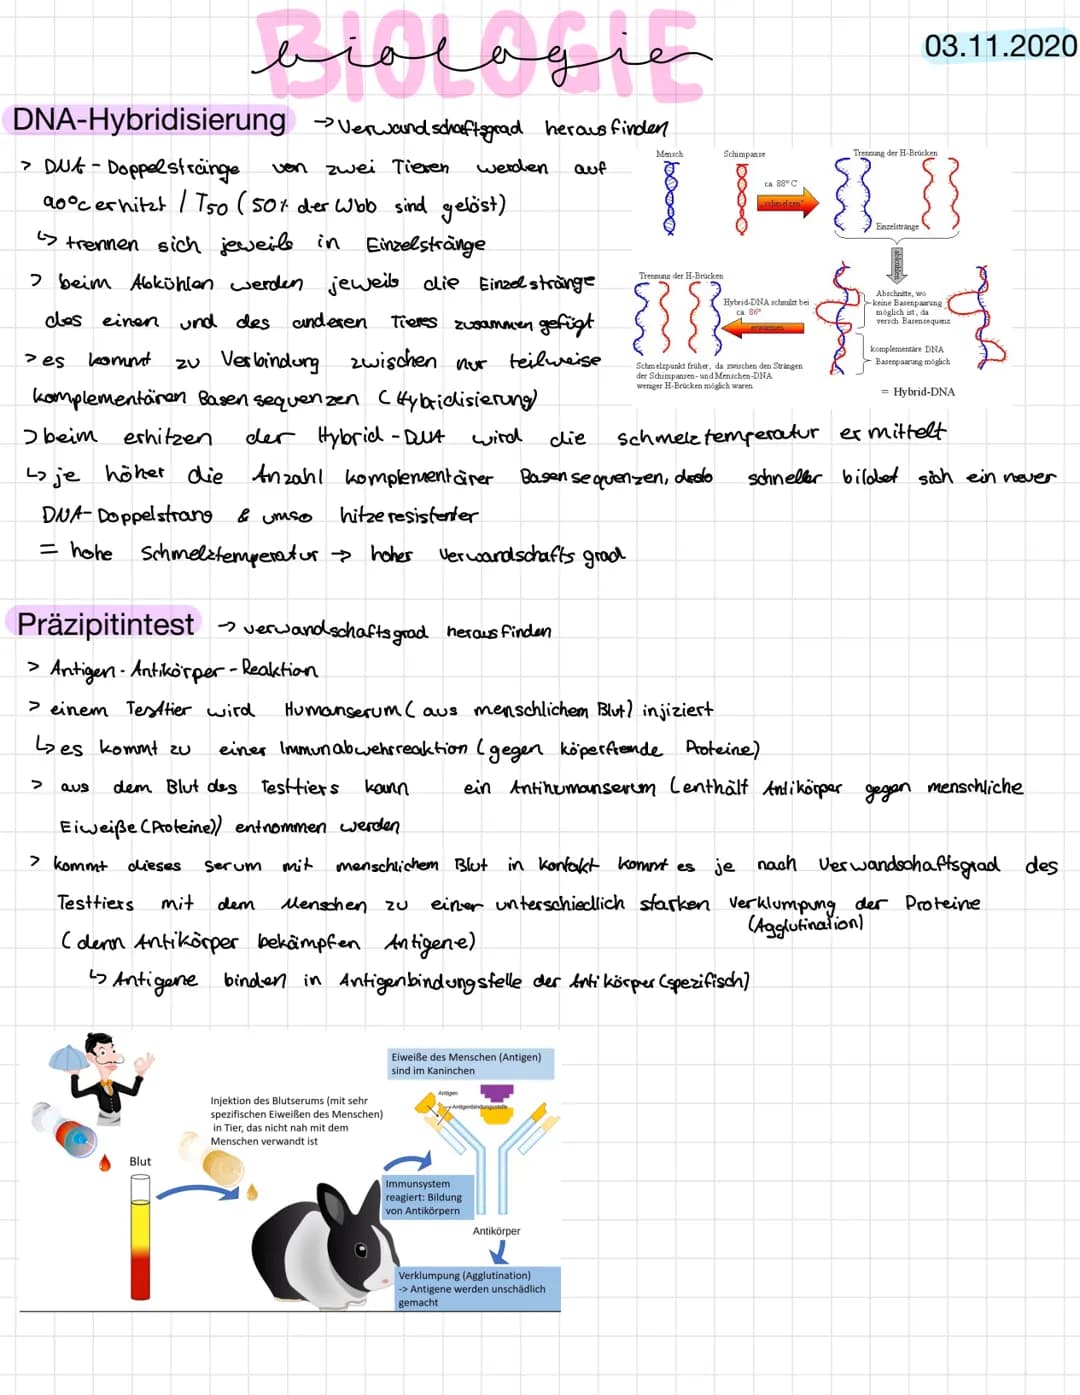 BIOLOGIE
biologie
03.11.2020
DNA-Hybridisierung → Verwandschaftsgrad herausfinden
> DNA - Doppelstränge von zwei Tieren werden auf
90°C erhitzt / T50 (50% der Wbb sind gelöst)
↳ trennen sich jeweils in Einzelstränge
> beim Abkühlen werden jeweils die Einzelstränge
des einen und des anderen Tieres zusammengefügt
> es kommt zu Verbindung zwischen nur teilweise
komplementären Basensequenzen (Hybridisierung)
> beim erhitzen der Hybrid-DNA wird die schmelztemperatur ermittelt
↳ je höher die Anzahl komplementärer Basensequenzen, desto schneller bildet sich ein neuer
DNA-Doppelstrang & umso hitzeresistenter
= hohe Schmelztemperatur → hoher Verwandschaftsgrad
Mensch
Schimpanse
Trennung der H-Brücken
ca. 88° C
"schmelzen"
Einzelstränge
abkühlen
Trennung der H-Brücken
Hybrid-DNA schmilzt bei
ca. 86°
erwärmen
Abschnitte, wo
keine Basenpaarung
möglich ist, da
versch. Basensequenz
komplementäre DNA
Basenpaarung möglich
= Hybrid-DNA
Schmelzpunkt früher, da zwischen den Strängen
der Schimpansen- und Menschen-DNA
weniger H-Brücken möglich waren.
Präzipitintest → verwandschaftsgrad herausfinden
> Antigen-Antikörper-Reaktion
> einem Testtier wird Humanserum (aus menschlichem Blut) injiziert
↳ es kommt zu einer Immunabwehrreaktion (gegen köperfremde Proteine)
> aus dem Blut des Testtiers kann ein Antihumanserum (enthält Antikörper gegen menschliche
Eiweiße (Proteine)) entnommen werden
> kommt dieses Serum mit menschlichem Blut in kontakt kommt es je nach Verwandschaftsgrad des
Testtiers mit dem Menschen zu einer unterschiedlich starken Verklumpung der Proteine
(Agglutination)
(denn Antikörper bekämpfen Antigene)
↳ Antigene binden in Antigenbindungsstelle der Antikörper (spezifisch)
Eiweiße des Menschen (Antigen)
sind im Kaninchen
Injektion des Blutserums (mit sehr
spezifischen Eiweißen des Menschen)
in Tier, das nicht nah mit dem
Menschen verwandt ist
Antigen
Antigenbindungsstelle
Blut
Immunsystem
reagiert: Bildung
von Antikörpern
Antikörper
Verklumpung (Agglutination)
-> Antigene werden unschädlich
gemacht